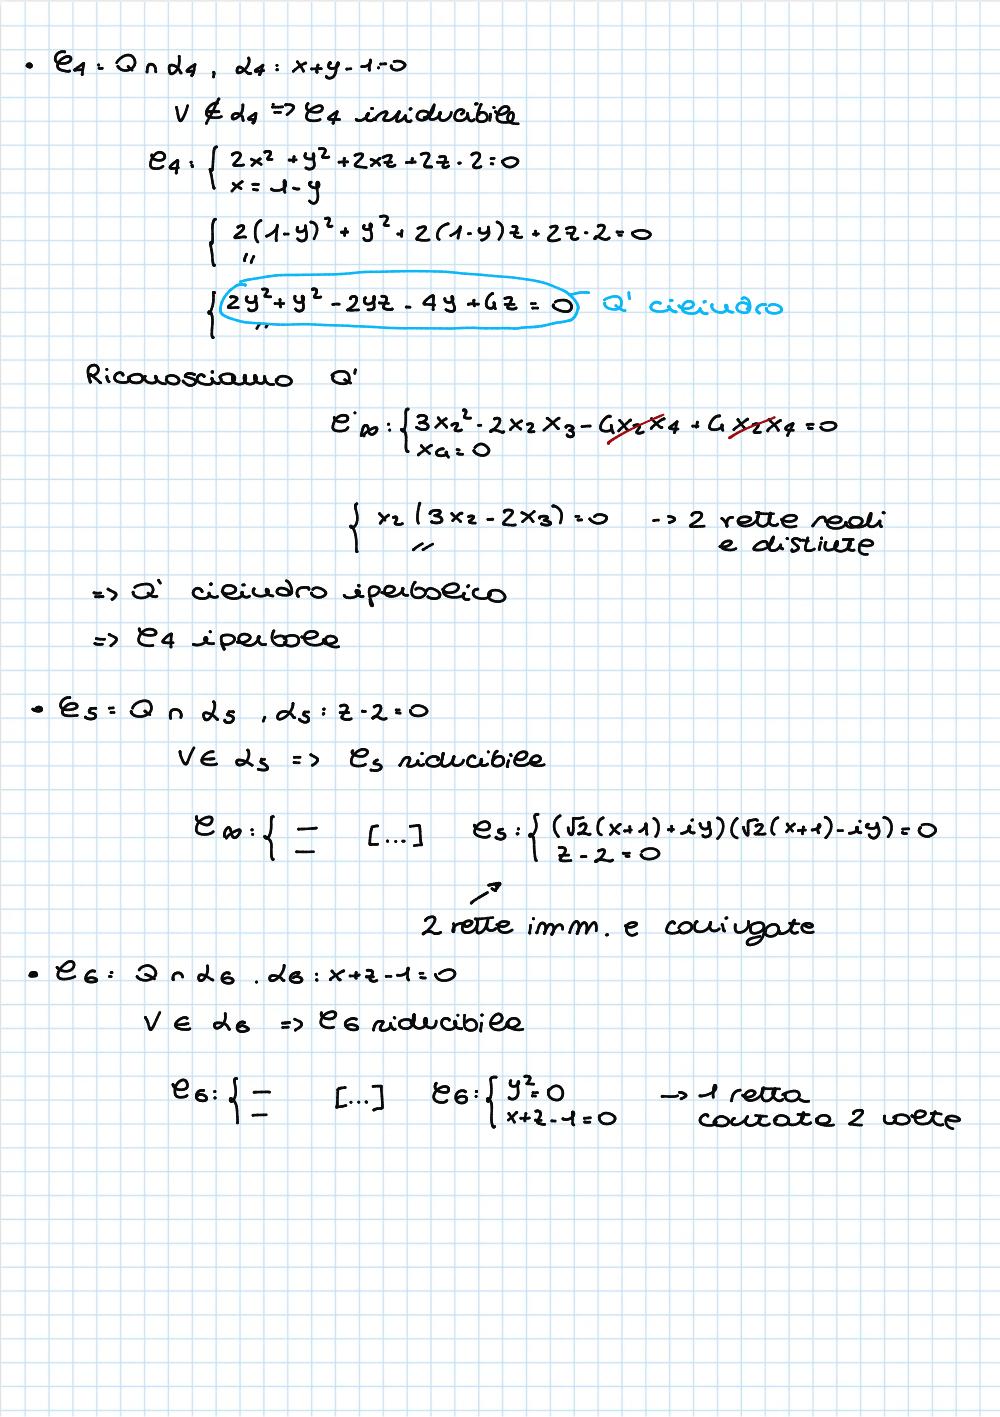 • C4 = Q ∩ α4 , α4 : x+y-1=0
V ∉ α4 => C4 irriducibile
C4 : { 2x² + y² + 2xz + 2z - 2 = 0
x = 1-y
{ 2(1-y)² + y² + 2(1-y)z + 2z - 2 = 0
"
{ 2y² + y² - 2yz - 4y + 4z = 0 Q' cilindro
"
Riconosciamo Q'
C'∞ : { 3x2² - 2x2x3 - 4x2x4 + 4x2x4 = 0
x4 = 0
{ x2 (3x2 - 2x3) = 0 -> 2 rette reali
" e distinte
=> Q' cilindro iperbolico
=> C4 iperbole
• C5 = Q ∩ α5 , α5 : z-2=0
V ∈ α5 => C5 riducibile
C∞ : { — [...] C5 : { (√2(x+1)+iy)(√2(x+1)-iy) = 0
— z-2=0
2 rette imm. e coniugate
• C6 : Q ∩ α6 . α6 : x+z-1=0
V ∈ α6 => C6 riducibile
C6 : { — [...] C6 : { y² = 0 -> 1 retta
— x+z-1=0 contata 2 volte